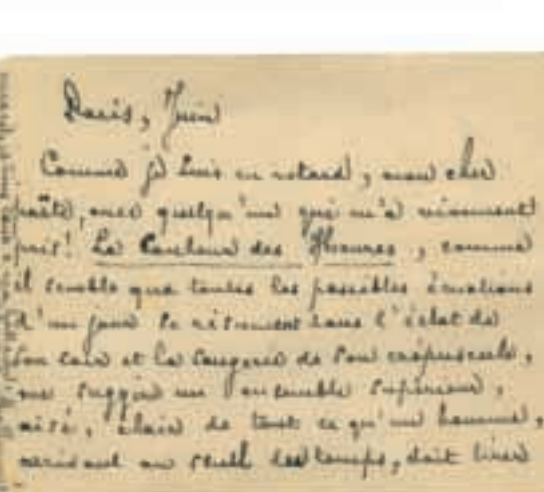 Paris, Juin
Comme je suis en retard, mon cher
poète, avec quelqu'un qui m'a vivement
pris! La Couleur des Heures, comme
il semble que toutes les possibles émotions
d'un jour se résument sous l'éclat de
son et la songerie de son crépuscule,
me suggère un ensemble supérieur,
aisé, clair de tout ce qu'un homme,
au seuil des temps, doit